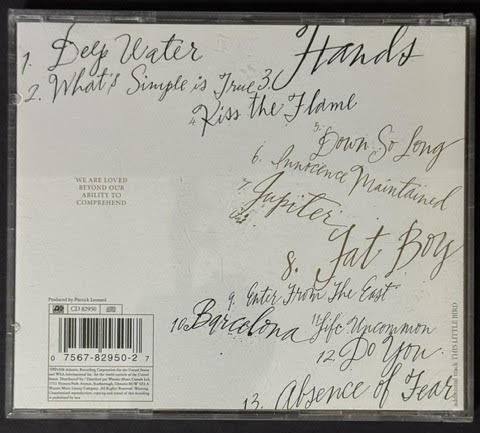 1. Deep Water
2. What's Simple is True
3. Hands
4. Kiss the Flame
5. Down So Long
6. Innocence Maintained
7. Jupiter
8. Fat Boy
9. Enter From The East
10. Barcelona
11. Life Uncommon
12. Do You
13. Absence of Fear
additional track THIS LITTLE BIRD
WE ARE LOVED
BEYOND OUR
ABILITY TO
COMPREHEND
Produced by Patrick Leonard
CD 82950
0 7567-82950-2 7